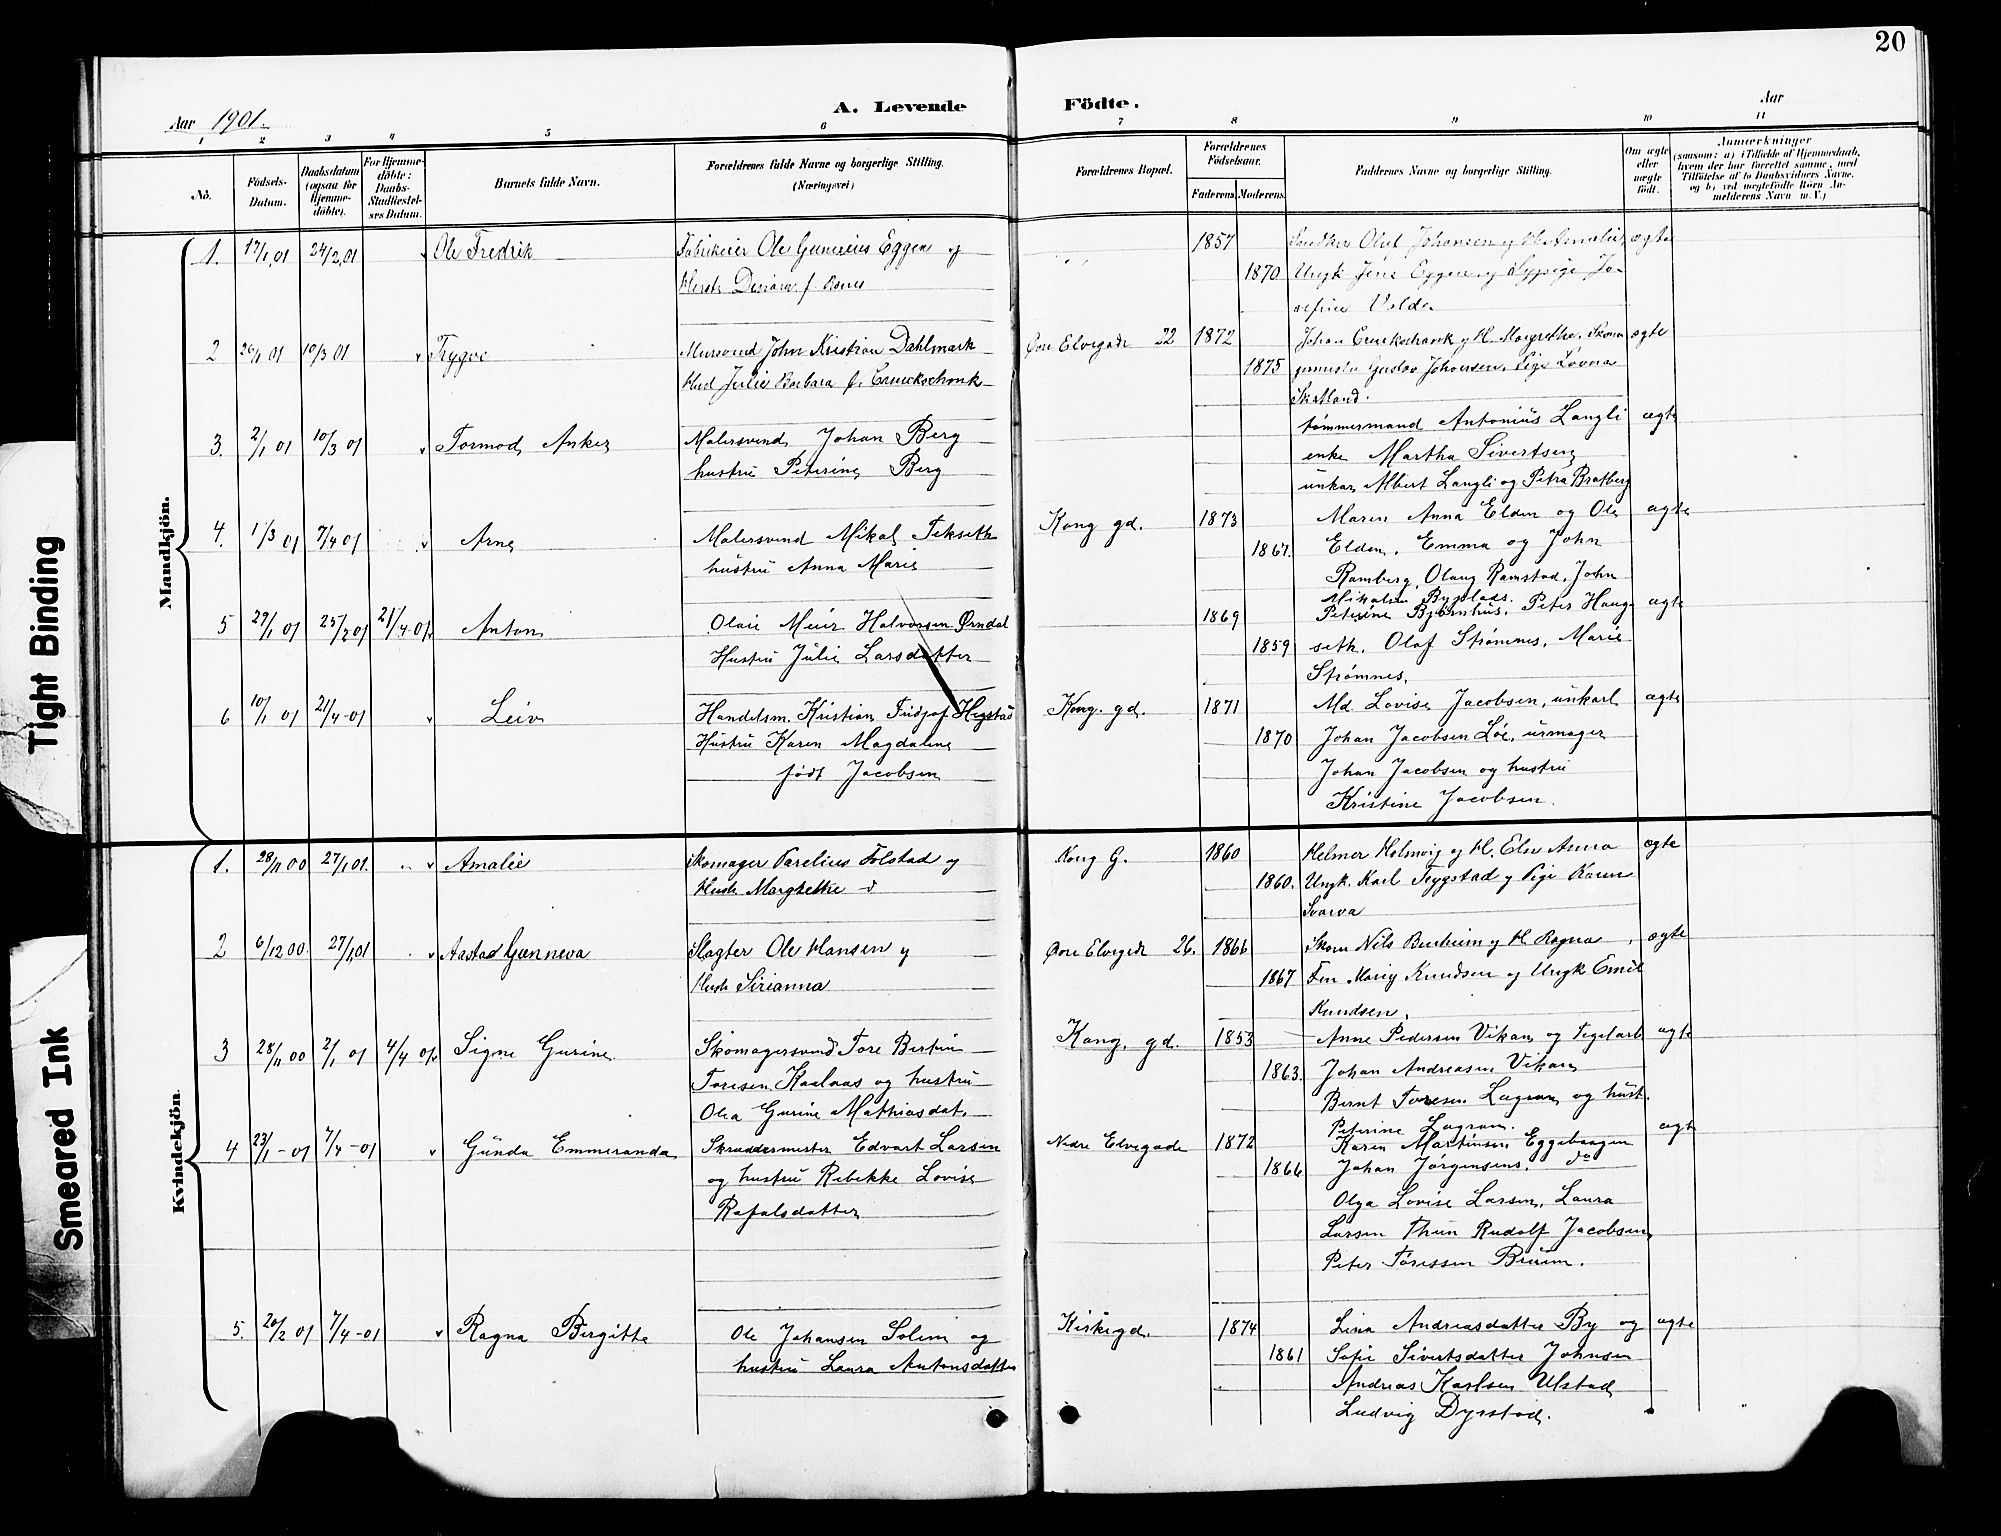 20
Aar 1901.
A. Levende Födte.
Aar
1 2 3 4 5 6 7 8 9 10 11
No.
Födsels-Datum.
Daabsdatum (ogsaa for Hjemmedöbte).
For Hjemmedöbte: Daabs-Stadfæstelses Datum.
Barnets fulde Navn.
Forældrenes fulde Navne og borgerlige Stilling. (Næringsvei)
Forældrenes Bopæl.
Forældrenes Födselsaar.
Faderens Moderens
Faddernes Navne og borgerlige Stilling.
Om ægte eller uægte födt.
Anmærkninger
(saasom: a) i Tilfælde af Hjemmedaab, hvem der har forrettet samme, med Tilföielse af to Daabsvidners Navne, og b) ved uægtefödte Börn Anmelderens Navn m. V.)
Mandkjön.
1. 17/1 01 24/2 01 Ole Fredrik
Ole Gunerius Eggen og
1857 Oluf Johansen ægte
1870 Ungk. Jens Eggen og Sypige Jo-
sefine Volden
2 10/3 01 Trygve
Mursvend John Kristian Dahlmark
Julie Barbara f.
Øvre Elvegade 22 1872 Johan
ægte
1875 Gustav Johansen, Pige Lovna
Skatland.
3. 2/1 01 10/3 01 Tormod Anker
Malersvend Johan Berg
hustru Peterine Berg
tømmermand Antonius Langli ægte
enke Martha Sivertsen
unkar Albert Langli og Petra Bratberg
4. 1/3 01 7/4 01 Arne
Malersvend Mikal Tekseth
hustru Anna Marie
Kong gd. 1873 Maren Anna Elden og Ole ægte
1867. Elden, Emma og John
Ramberg, Olaug Ramstad, John
Mikalsen Bygplads.
5 29/1 01 25/2 01 21/4-01 Anton
Olaie Meier Halvorsen Ørndal
Hustru Julie Larsdatter
1869 Peterine Bjørnhus, Peter Haug- ægte
1859 seth, Olaf Strømnes, Marie
Strømnes.
6 10/1 01 21/4-01 Leiv
Handelsm. Kristian Fridjof Hegstad
Hustru Karen Magdaline
født Jacobsen
Kong. gd. 1871 Md. Lovise Jacobsen, unkarl ægte
1870 Johan Jacobsen Løe, urmager
Johan Jacobsen og hustru
Kristine Jacobsen.
Kvindekjön.
1. 28/11 00 27/1 01. Amalie
Skomager Parelius Tolstad og
Hust. Marghethe
Kong G. 1860 Helmer Holmvig og H. Anna ægte
1860. Ungk. Karl Trygstad og Pige Karen
Svarva
2 6/12 00. 27/1 01 Aastad Gunneva
Slagter Ole Hansen og
Hust. Sirianna
Øvre Elvegade 26. 1866 Skom. Nils og H. Ragna ægte
1867 Knudsen og Ungk Emil
Knudsen.
3 28/11 00 2/1 01 4/4 01 Signe Gurine
Skomagersvend Tore
Toresen Kaalaas og hustru
Olea Gurine Mathiasdat.
Kong. gd. 1853 Anne Pedersen Vikan og ægte
1863. Johan Andreasen Vikan
Bernt Toresen Lagran og hust.
Peterine Lagran.
4 23/1-01 7/4-01 Gunda Emmeranda
Skræddermester Edvart Larsen
og hustru Rebekke Lovise
Rafalsdatter
Nedre Elvegade 1872 Karen Martinsen Eggebaagen ægte
1866 Johan Jørgensens, do
Olga Lovise Larsen, Laura
Larsen Thun Rudolf Jacobsen,
Peter Toressen Bruun.
5. 20/2 01 7/4-01 Ragna Bergitte
Ole Johansen Solem og
hustru Laura Antonsdatter
Kirkegd. 1874 Lina Andreasdatter By og ægte
1861 Sofie Sivertsdatter Johnsen
Andreas Karlsen Ulstad
Ludvig Dyrstad.
Tight Binding
Smeared Ink